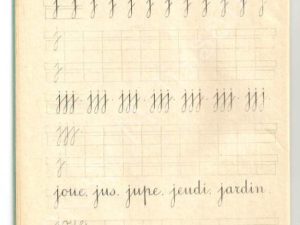 j j j j j j j j j j j j
j
j
jjj jjj jjj jjj jjj jjj jjj
jjj
j
joue. jus. jupe. jeudi. jardin.